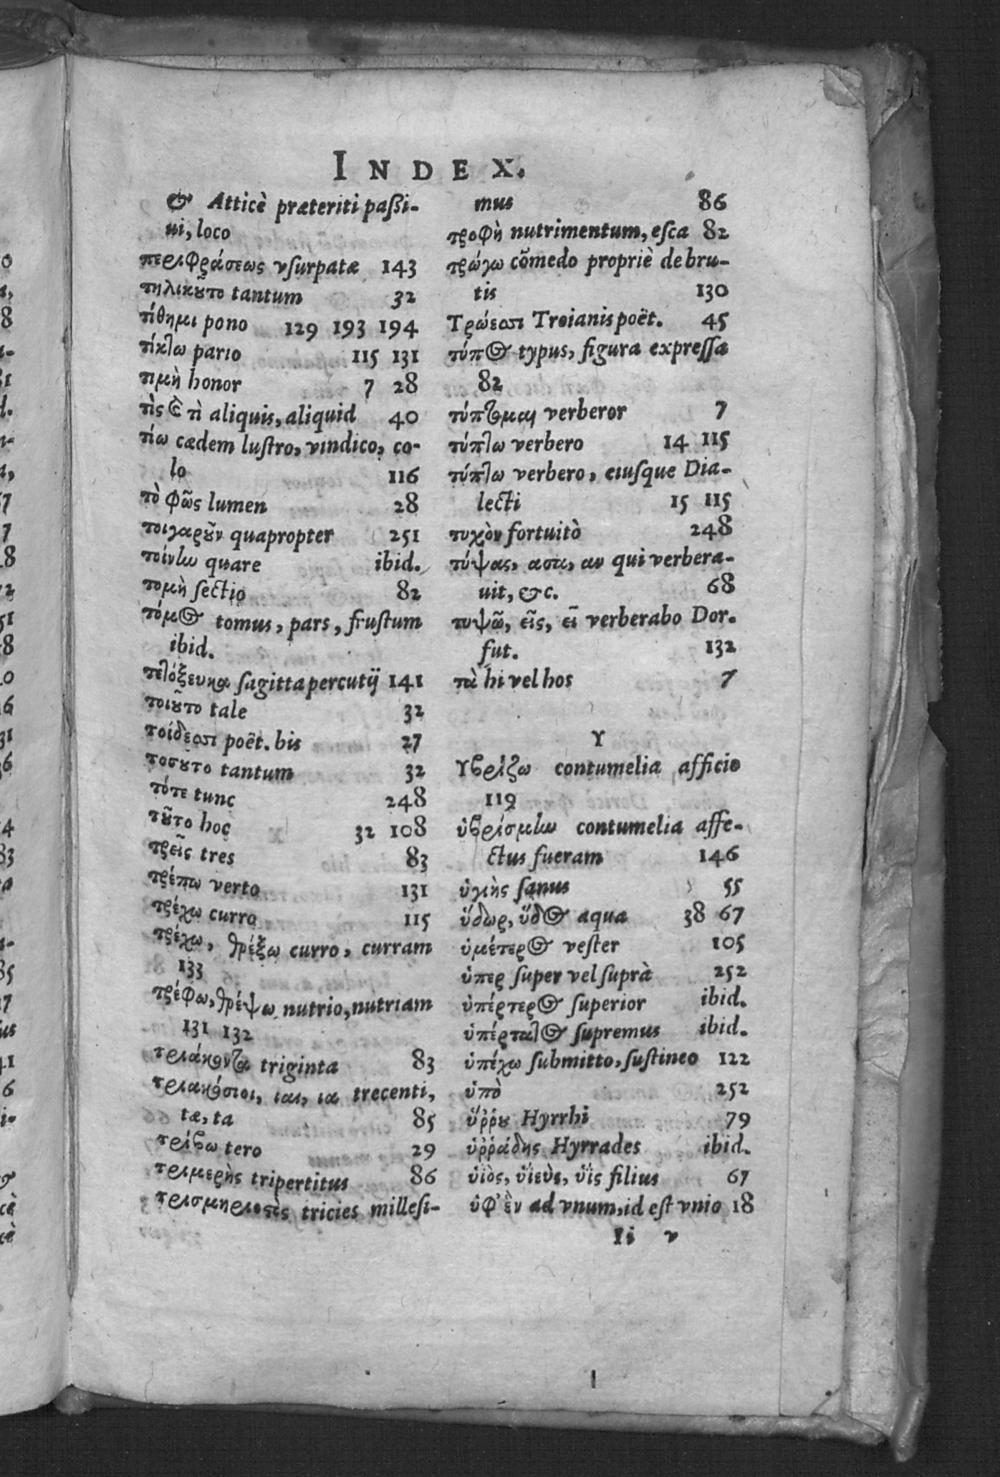 INDEX.
& Atticè præteriti passi-
ui, loco
περιφράσεως vsurpatæ 143
τηλικοῦτο tantum 32
τίθημι pono 129 193 194
τίκτω pario 115 131
τιμὴ honor 7 28
τὶς & τὶ aliquis, aliquid 40
τίω cædem lustro, vindico, co-
lo 116
τὸ φῶς lumen 28
τοιγαροῦν quapropter 251
τοίνυν quare ibid.
τομὴ sectio 82
τόμος tomus, pars, frustum
ibid.
τετόξευκα sagitta percutij 141
τοιοῦτο tale 32
τοίδεσσι poët. bis 27
τοσοῦτο tantum 32
τότε tunc 248
τοῦτο hoc 32 108
τρεῖς tres 83
τρέπω verto 131
τρέχω curro 115
τρέχω, θρέξω curro, curram
133
τρέφω, θρέψω nutrio, nutriam
131 132
τριάκοντα triginta 83
τριακόσιοι, ιαι, ια trecenti,
tæ, ta 85
τρίβω tero 29
τριμερὴς tripertitus 86
τρισμυριοστὸς tricies millesi-
mus 86
τροφὴ nutrimentum, esca 82
τρώγω cõmedo propriè de bru-
tis 130
Τρώεσσι Troianis poët. 45
τύπος typus, figura expressa
82
τύπτομαι verberor 7
τύπτω verbero 14 115
τύπτω verbero, eiusque Dia-
lecti 15 115
τυχὸν fortuitò 248
τύψας, ασα, αν qui verbera-
uit, &c. 68
τυψῶ, εῖς, εῖ verberabo Dor.
fut. 132
τὼ hi vel hos 7
Υ
Υβρίζω contumelia afficio
119
ὑβρίσμην contumelia affe-
ctus fueram 146
ὑγιὴς sanus 55
ὕδωρ, ὕδος aqua 38 67
ὑμέτερος vester 105
ὑπερ super vel suprà 252
ὑπέρτερος superior ibid.
ὑπέρτατος supremus ibid.
ὑπέχω submitto, sustineo 122
ὑπὸ 252
ὕῤῥου Hyrrhi 79
ὑῤῥάδης Hyrrades ibid.
ὑιὸς, ὑϊεὺς, ὑῒς filius 67
ὑφ' ἓν ad vnum, id est vnio 18
Ii v